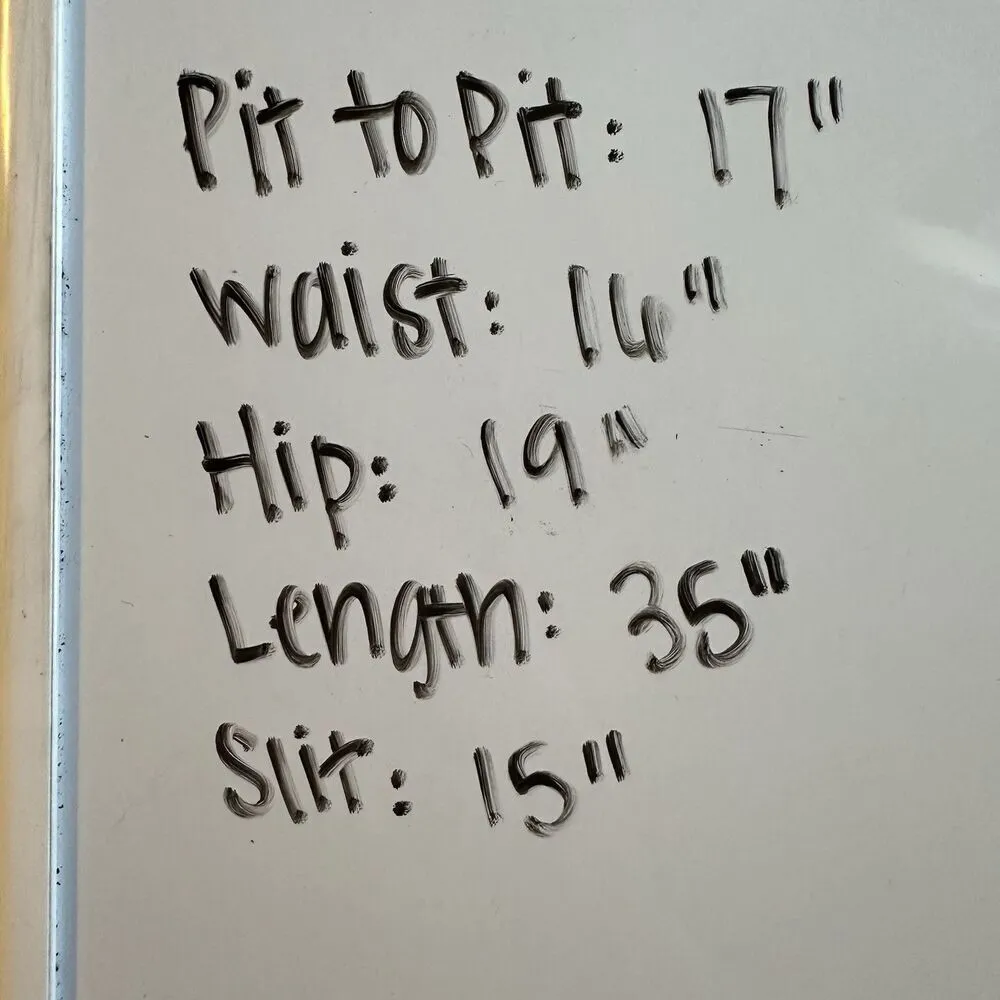 Pit to Pit: 17"
Waist: 16"
Hip: 19"
Length: 35"
Slit: 15"